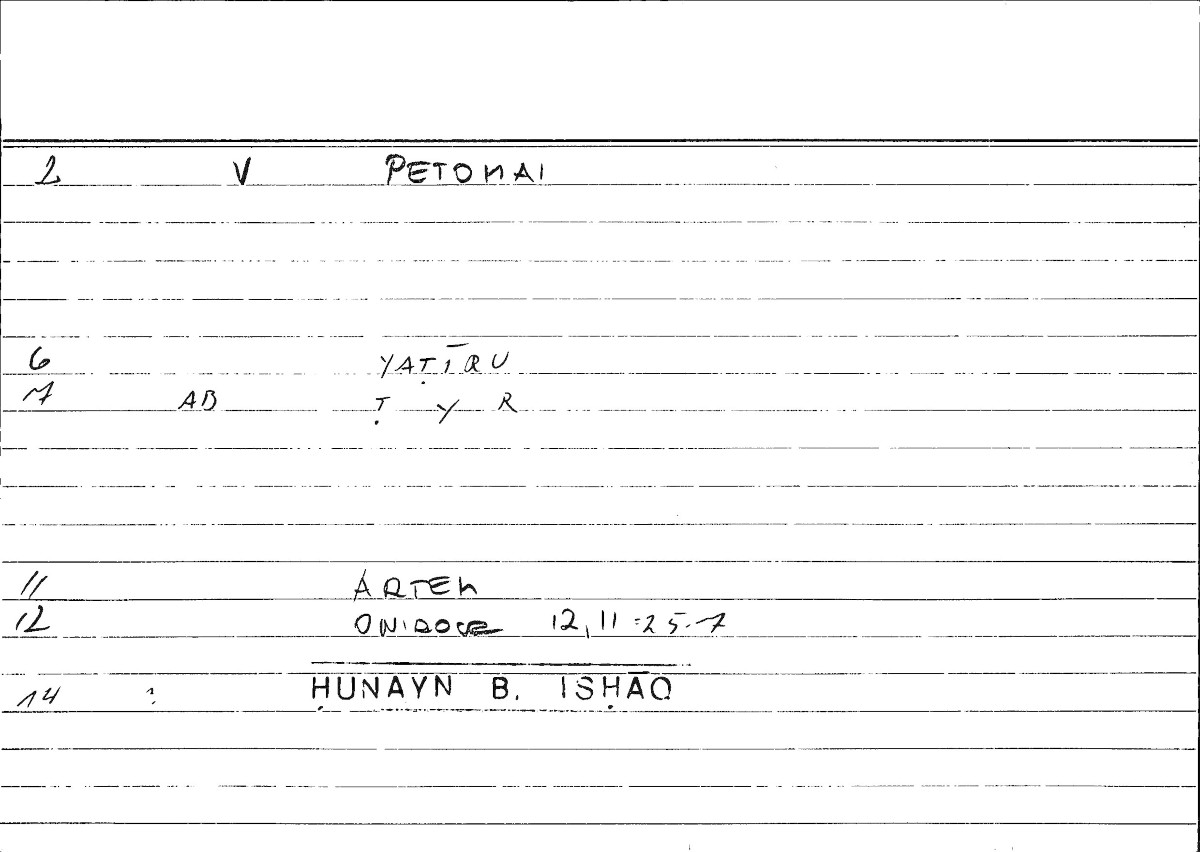 2 V PETOMAI
6 YAṬĪRU
7 AB Ṭ Y R
11 ARTEM
12 ONIROCR 12,11 =25.-7
14 ? ḤUNAYN B. ISḤĀQ